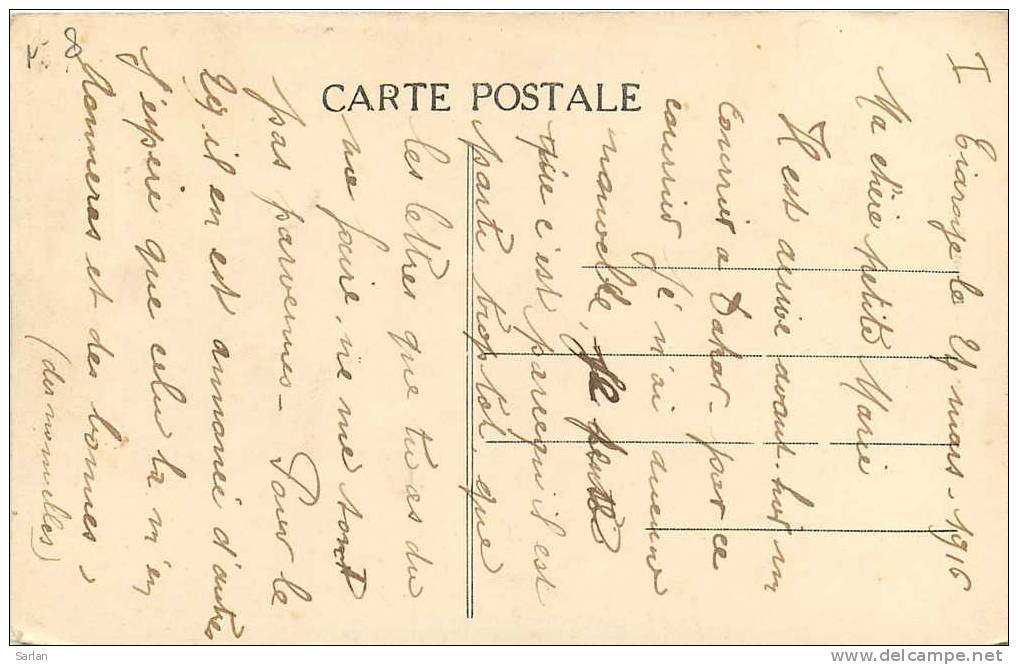 CARTE POSTALE
I
le 24 mars. 1916
Ma chère petite Marie
Il est arrivé avant-hier un
courrier a Dakar. par ce
courrier Je n'ai aucune
nouvelle,
que c'est parcequ'il est
parti trop tôt, que
les lettres que tu as du
me faire, ne me sont
pas parvennes - Pour le
24 il en est annoné d'autres
J'espère que celui la m'en
donneras et des bonnes,
(des nouvelles)
Sarlan
delcampe.net